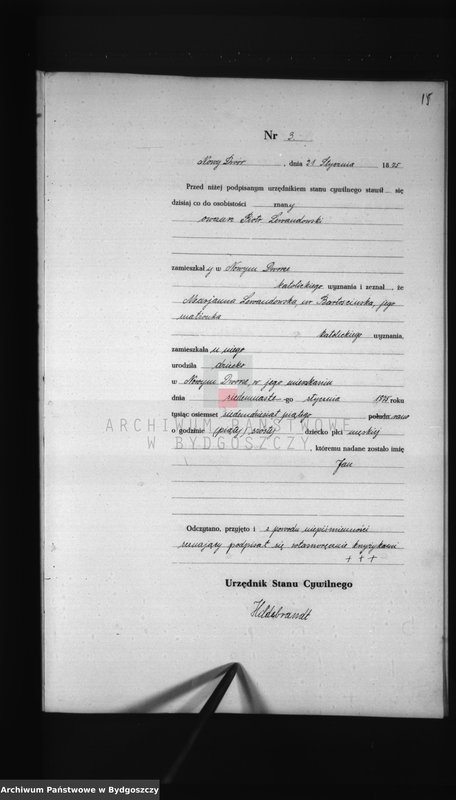 18
Nr 3.
Nowy Dwór, dnia 21 Stycznia 1875
Przed niżej podpisanym urzędnikiem stanu cywilnego stawił się
dzisiaj co do osobistości znany
owczarz Piotr Lewandowski
zamieszkały w Nowym Dworze
katolickiego wyznania i zeznał, że
Maryanna Lewandowska, ur. jego
małżonka
katolickiego wyznania,
zamieszkała u niego
urodziła dziecko
w Nowym Dworze, w jego mieszkaniu
dnia siedemnaste-go stycznia 1875 roku
tysiąc osiemset siedemdziesiąt piątego połudn rano
ARCHIWUM PAŃSTWOWE
o godzinie (piątej) szóstej dziecko płci męskiej
W BYDGOSZCZY
, któremu nadane zostało imię
Jan
Odczytano, przyjęto i z powodu niepiśmienności
zeznający podpisał się własnoręcznie krzyżykami
+ + +
Urzędnik Stanu Cywilnego
Hildebrandt
Archiwum Państwowe w Bydgoszczy